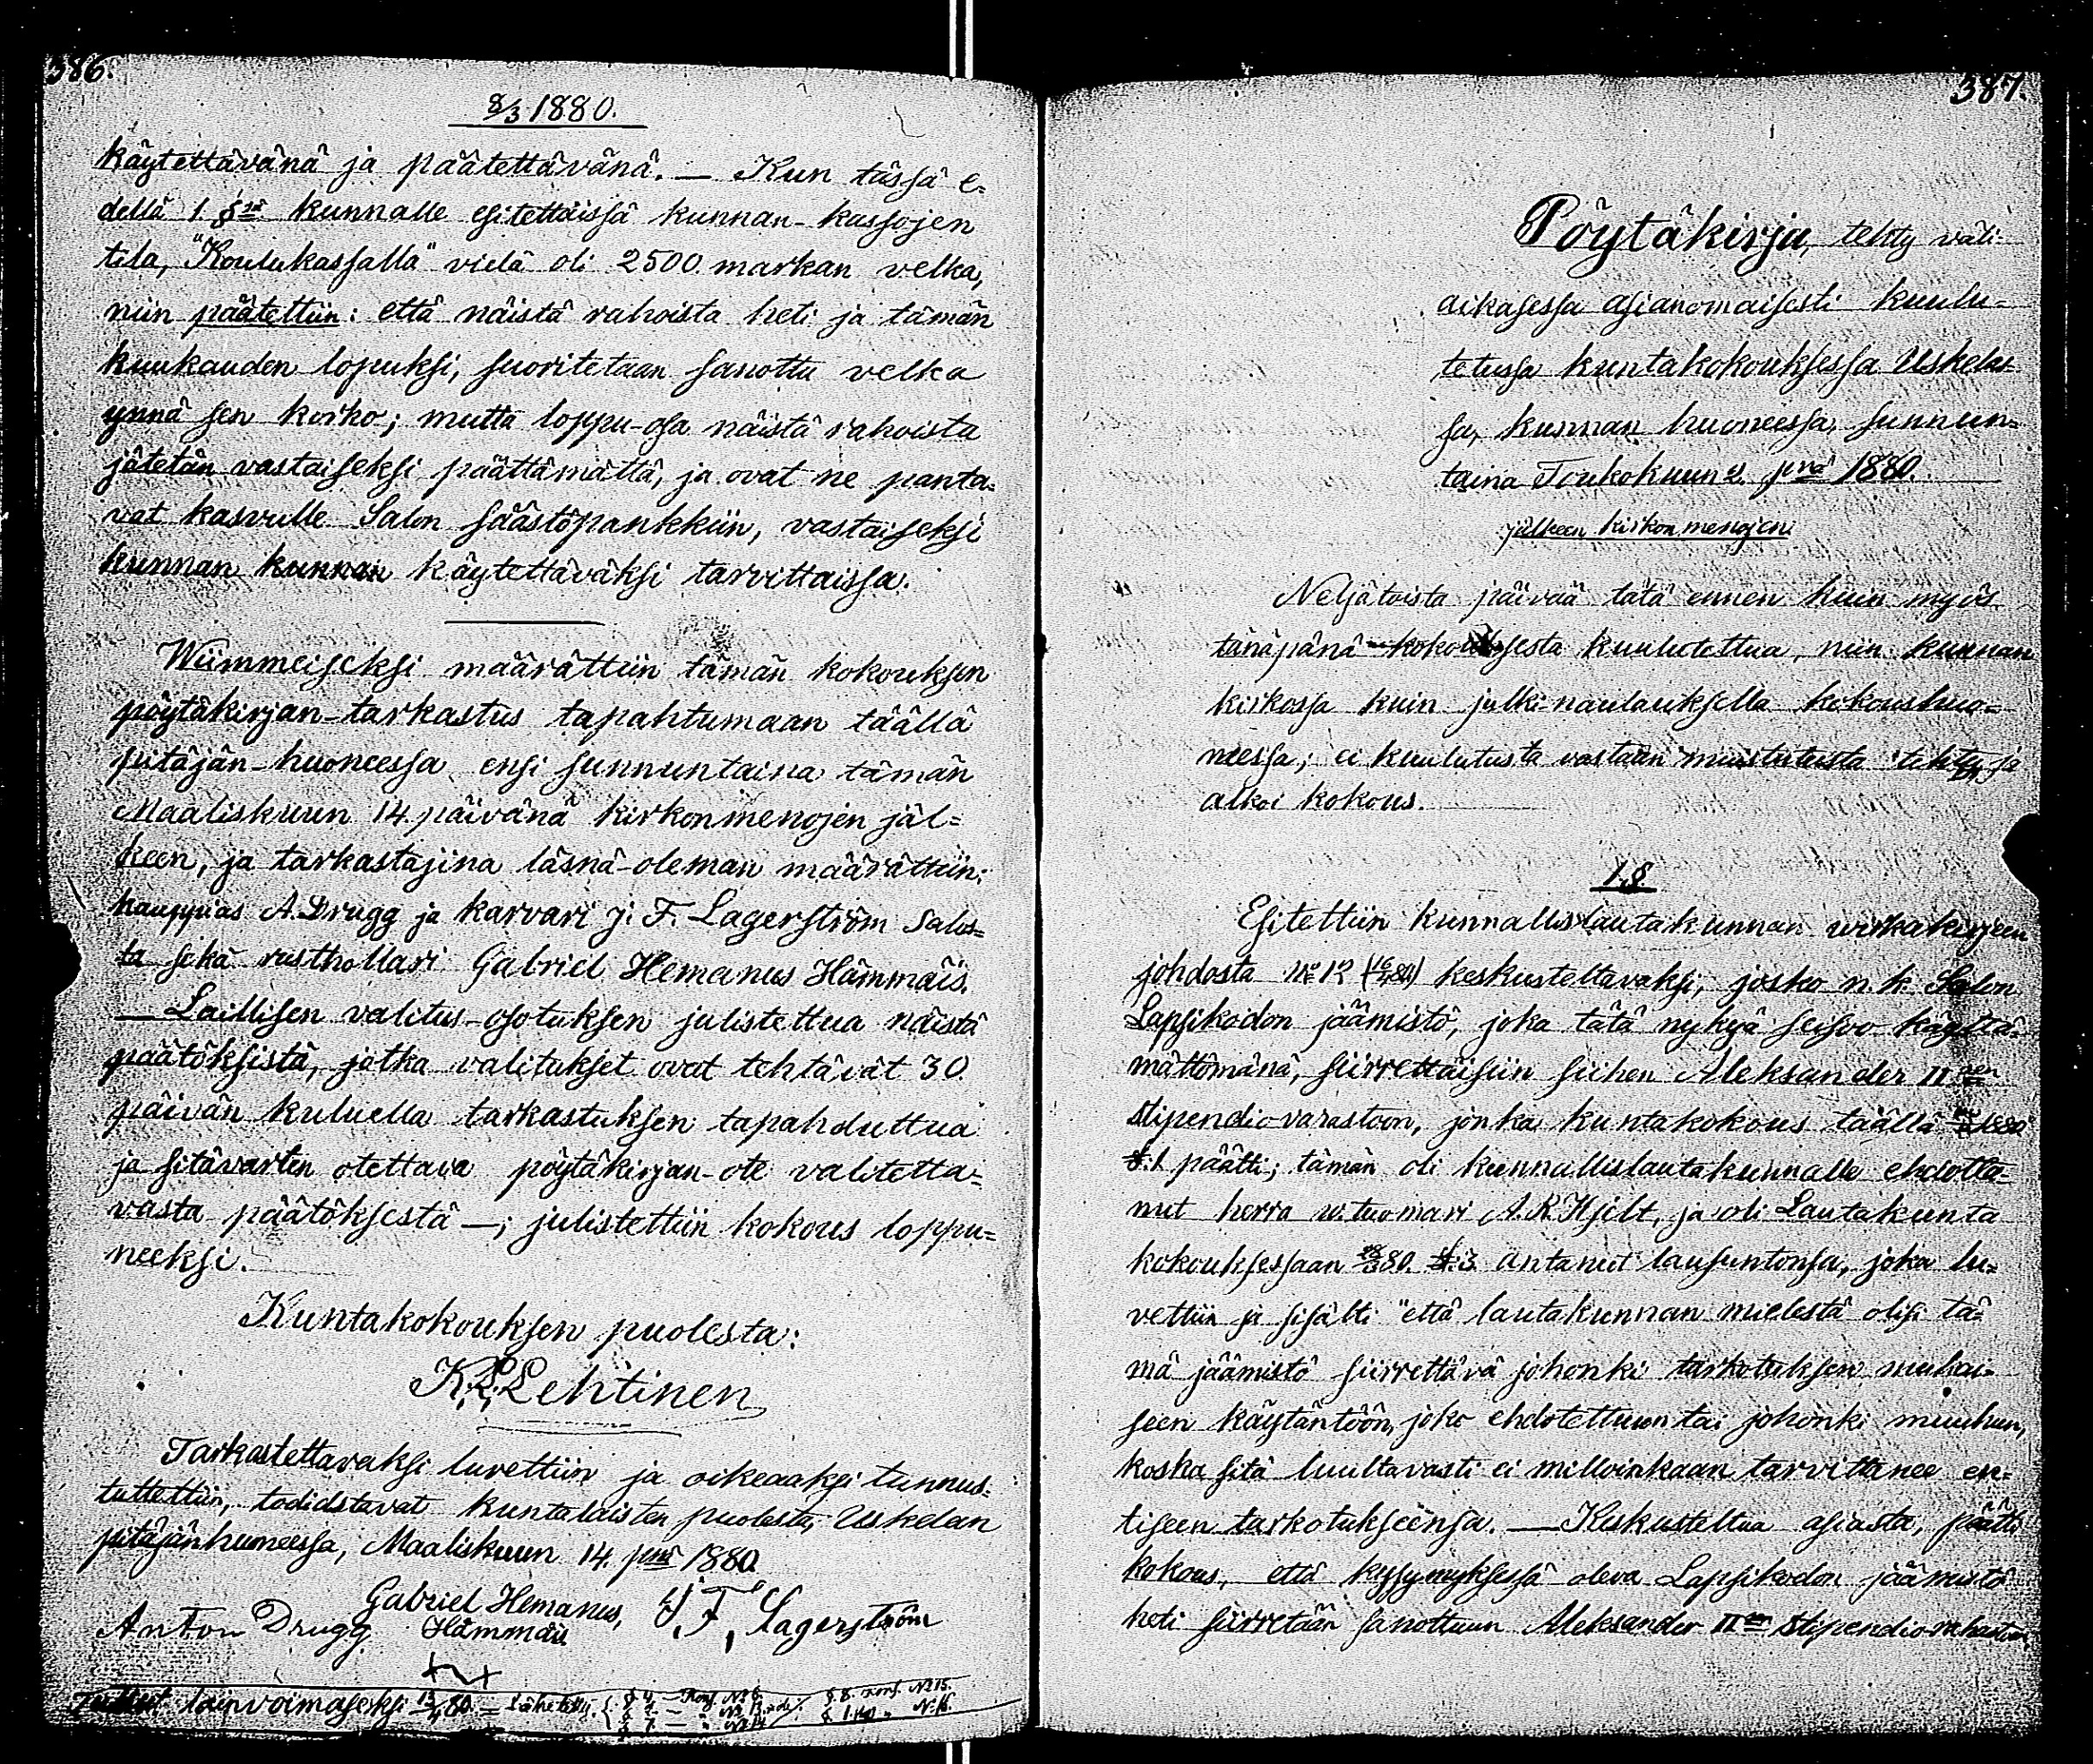 386.
8/3 1880.
käytettävänä ja päätettävänä. — Kun tässä e=
dellä 1 §sä kunnalle esitettäissä kunnan-kassojen
tila, "Koulukassalla" vielä oli 2500 markan velka,
niin päätettiin: että näistä rahoista heti ja tämän
kuukauden lopuksi, suoritetaan sanottu velka
ynnä sen korko; mutta loppu-osa näistä rahoista
jätetän vastaiseksi päättämättä, ja ovat ne panta=
vat kasvulle Salon säästöpankkiin, vastaiseksi
kunnan kunnan käytettäväksi tarvittaissa.
Wiimmeiseksi määrättiin tämän kokouksen
pöytäkirjan-tarkastus tapahtumaan täällä
pitäjän-huoneessa ensi sunnuntaina tämän
Maaliskuun 14 päivänä kirkonmenojen jäl=
keen, ja tarkastajina läsnä-oleman määrättiin:
kauppias A. Drugg ja karvari J. F. Lagerström Salos=
ta sekä rusthollari Gabriel Hemanus Hämmäis.
— Laillisen valitus-osotuksen julistettua näistä
päätöksistä, jotka valitukset ovat tehtävät 30
päivän kuluella tarkastuksen tapahduttua
ja sitävarten otettava pöytäkirjan-ote valitetta=
vasta päätöksestä —; julistettiin kokous loppu=
neeksi.
Kuntakokouksen puolesta:
K. L. Lehtinen
Tarkastettavaksi luvettiin ja oikeaaksi tunnus=
tuttettiin, todidstavat kuntalaisten puolesta, Uskelan
pitäjänhuoneessa, Maaliskuun 14 pnä 1880.
Gabriel Hemanus, J. F. Lagerström
Anton Drugg Hämmäis
lainvoimaseksi 13/4 80. = Lähetetty
387.
Pöytäkirja, tehty väli=
aikasessa asianomaisesti kuulu=
tetussa kuntakokouksessa Uskelas=
sa, kunnan huoneessa, sunnun=
taina Toukokuun 2 pnä 1880.
jälkeen kirkon menojen.
Neljätoista päivää tätä ennen kuin myös
tänäpänä kokouksesta kuulutettua, niin kunnan
kirkossa kuin julki-naulauksella kokoushuo=
neessa; ei kuulutusta vastaan muistutusta tehty ja
alkoi kokous.
1 §.
Esitettiin kunnallislautakunnan virkakirjeen
johdosta No 12 (16/4 80) keskusteltavaksi, josko n. k. Salon
Lapsikodon jäämistö, joka tätä nykyä seisoo käyttä=
mättömänä, siirrettäisiin siihen Aleksander II sen
stipendio-varastoon, jonka kuntakokous täällä 1880
§. 1 päätti; tämän oli kunnallislautakunnalle ehdotta=
nut herra v. tuomari A. R. Hjelt, ja oli Lautakunta
kokouksessaan 28/3 80. §. 3 antanut lausuntonsa, joka lu=
vettiin ja sisälti "että lautakunnan mielestä olisi tä=
mä jäämistö siirrettävä johonki tarkotuksen mukai=
seen käytäntöön, joko ehdotettuun tai johonki muuhun,
koska sitä luultavasti ei milloinkaan tarvittanee en=
tiseen tarkotukseensa. — Keskusteltua asiasta, päätti
kokous, että kysymyksessä oleva Lapsikodon jäämistö
heti siirretään sanottuun Aleksander II sen Stipendio-rahastoon